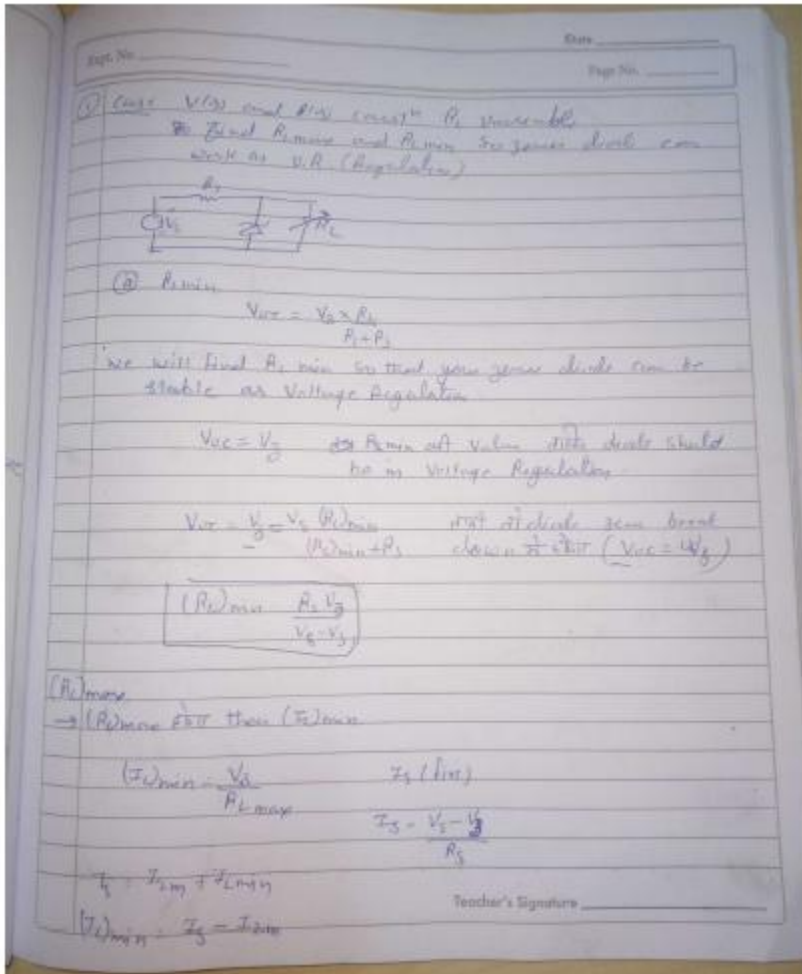 Date
Expt. No.
Page No.
① Case V(s) and R(s) const R_L variable
To find R_L max and R_L min so zener diode can
work as V.R. (Regulation)
R_s
V_s R_L
ⓐ R_L min
V_OC = V_s × R_L
R_L + R_s
we will find R_L min so that your zener diode can be
stable as Voltage Regulation
V_OC = V_z R_L min diode should
be in Voltage Regulation
V_OC = V_z = V_s (R_L)min diode zener break
(R_L)min + R_s down में होगा (V_OC = V_z)
(R_L)min R_s V_z
V_s - V_z
(R_L)max
→ (R_L)max होगा then (I_L)min
(I_L)min = V_z I_s (fix)
R_L max
I_s = V_s - V_z
R_s
I_s = I_zm + I_L min
(I_L)min = I_s - I_zm
Teacher's Signature